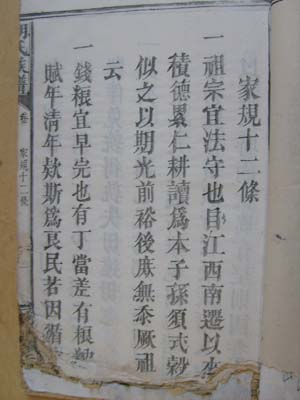 家規十二條
一祖宗宜法守也自江西南遷以來
積德累仁耕讀爲本子孫須式穀
似之以期光前裕後庶無忝厥祖
云
一錢粮宜早完也有丁當差有粮
賦年清年欵斯爲良民若因循
氏族譜
卷
家規十二條